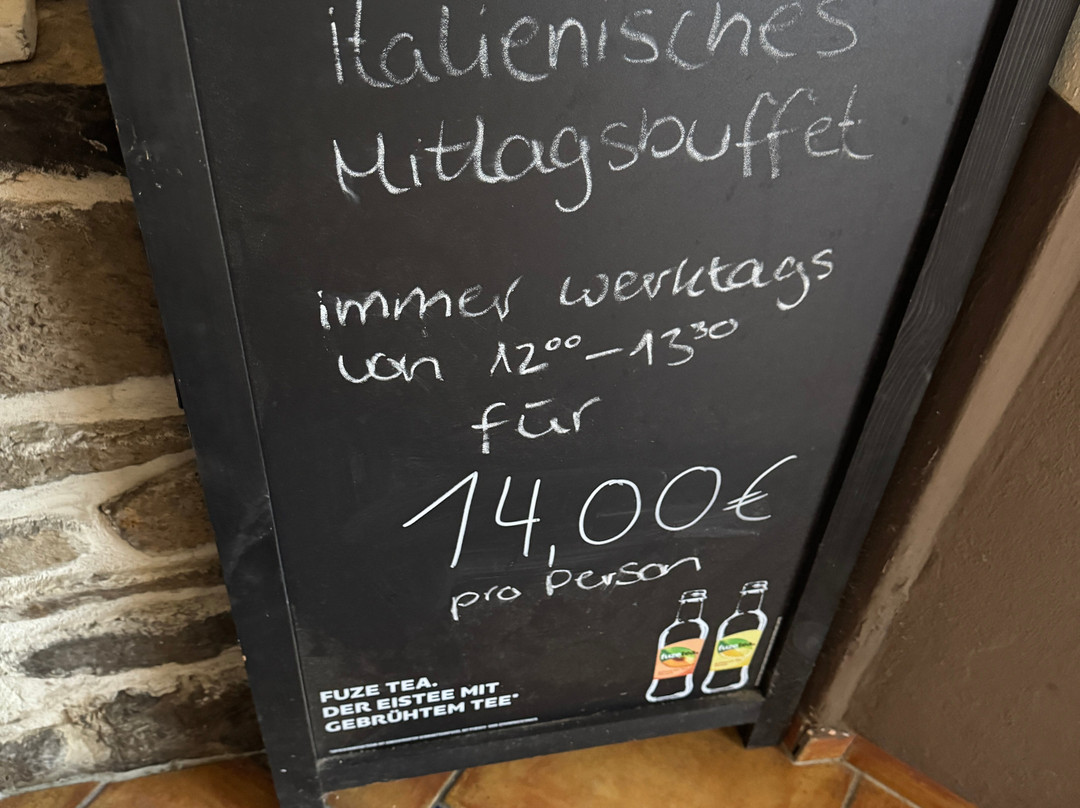 italienisches
Mittagsbuffet
immer werktags
von 12⁰⁰-13³⁰
für
14,00€
pro Person
FUZE TEA.
DER EISTEE MIT
GEBRÜHTEM TEE*
fuze tea
fuze tea